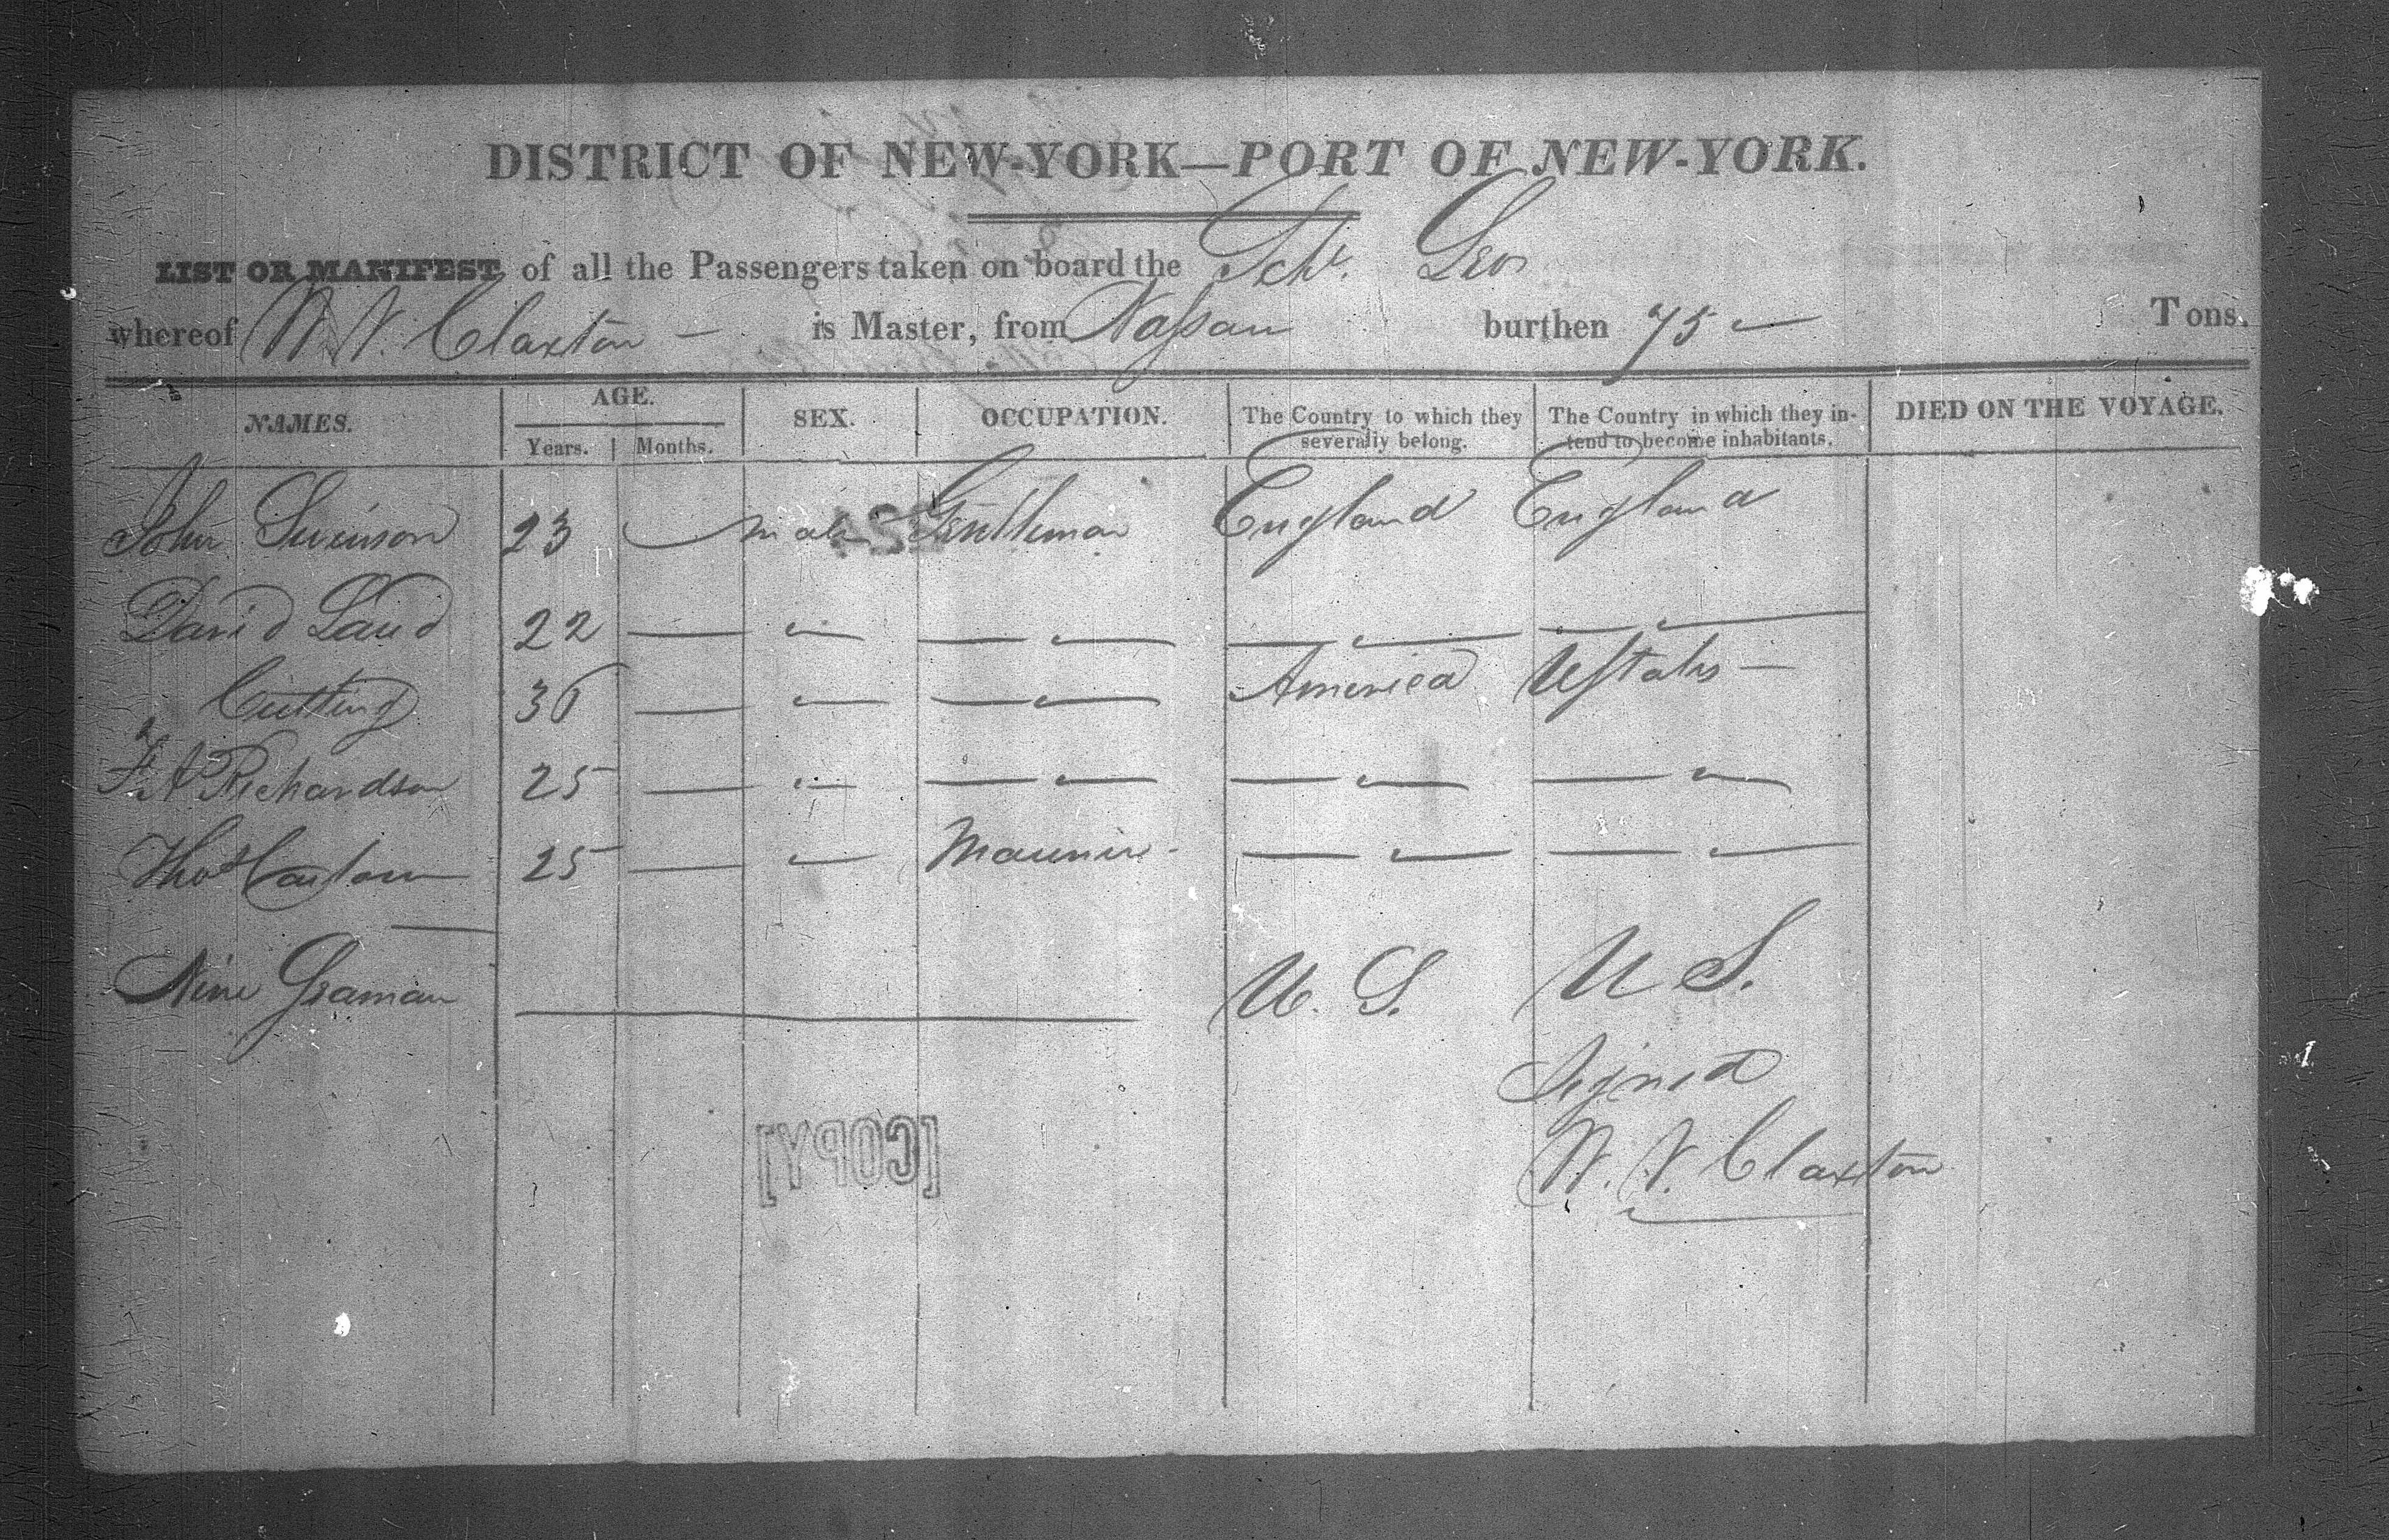 DISTRICT OF NEW-YORK—PORT OF NEW-YORK.
LIST OR MANIFEST of all the Passengers taken on board the Schr. Leo
whereof W. N. Claxton — is Master, from Nassau burthen 75 — Tons.
NAMES. AGE. SEX. OCCUPATION. The Country to which they severally belong. The Country in which they intend to become inhabitants. DIED ON THE VOYAGE.
Years. Months.
John Swinson 23 male Gentleman England England
David Laud 22
Cutting 36 America UStates —
F A Richardson 25
Thos 25 Mariner
Nine U. S. U S.
Signed
W. N. Claxton
[COPY]